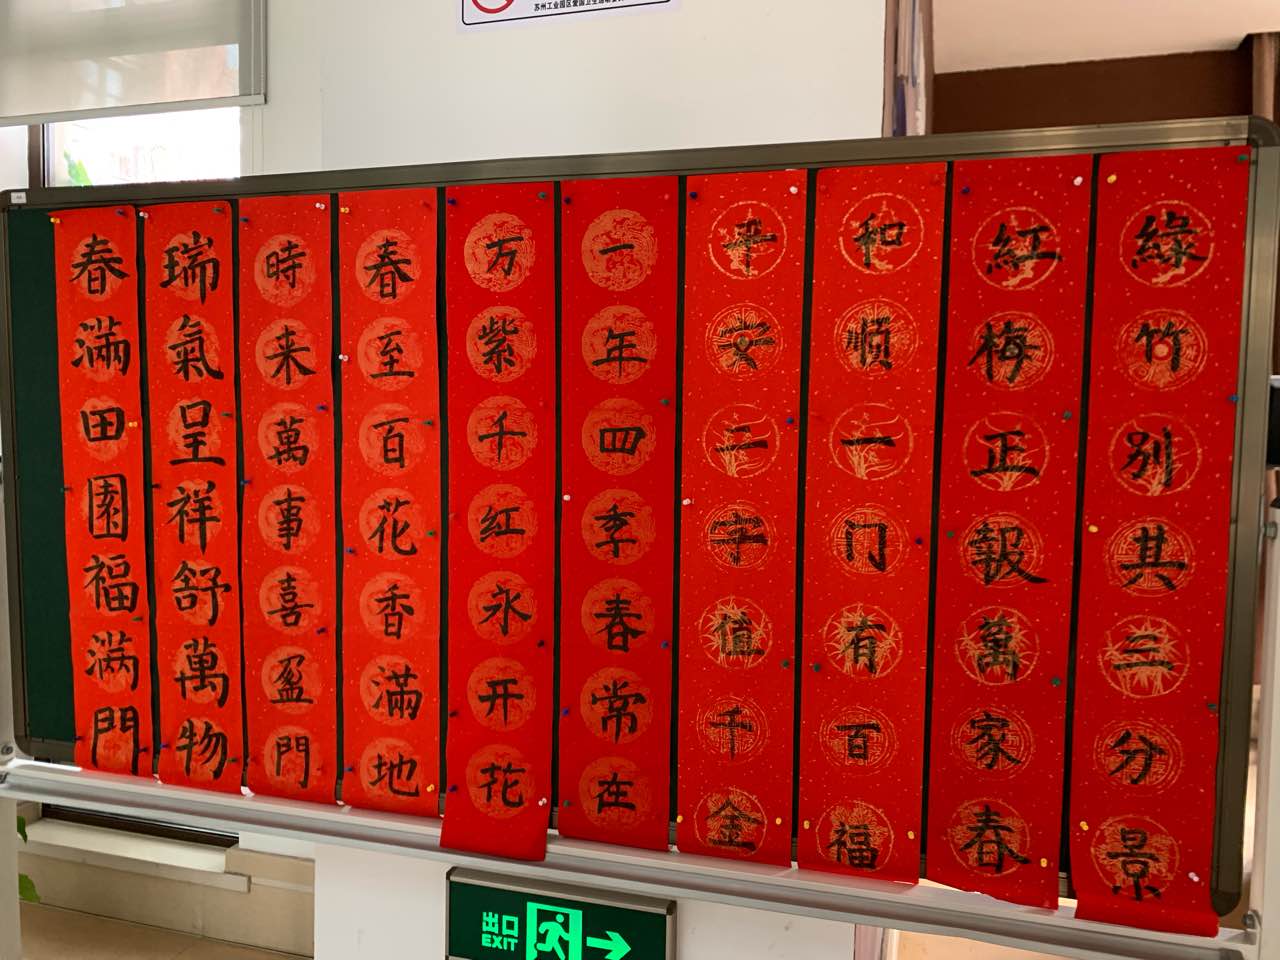 苏州工业园区爱国卫生运动委
綠竹别其三分景
紅梅正報萬家春
和順一门有百福
平安二字值千金
一年四季春常在
万紫千红永开花
春至百花香滿地
時来萬事喜盈門
瑞氣呈祥舒萬物
春滿田園福满門
出口
EXIT